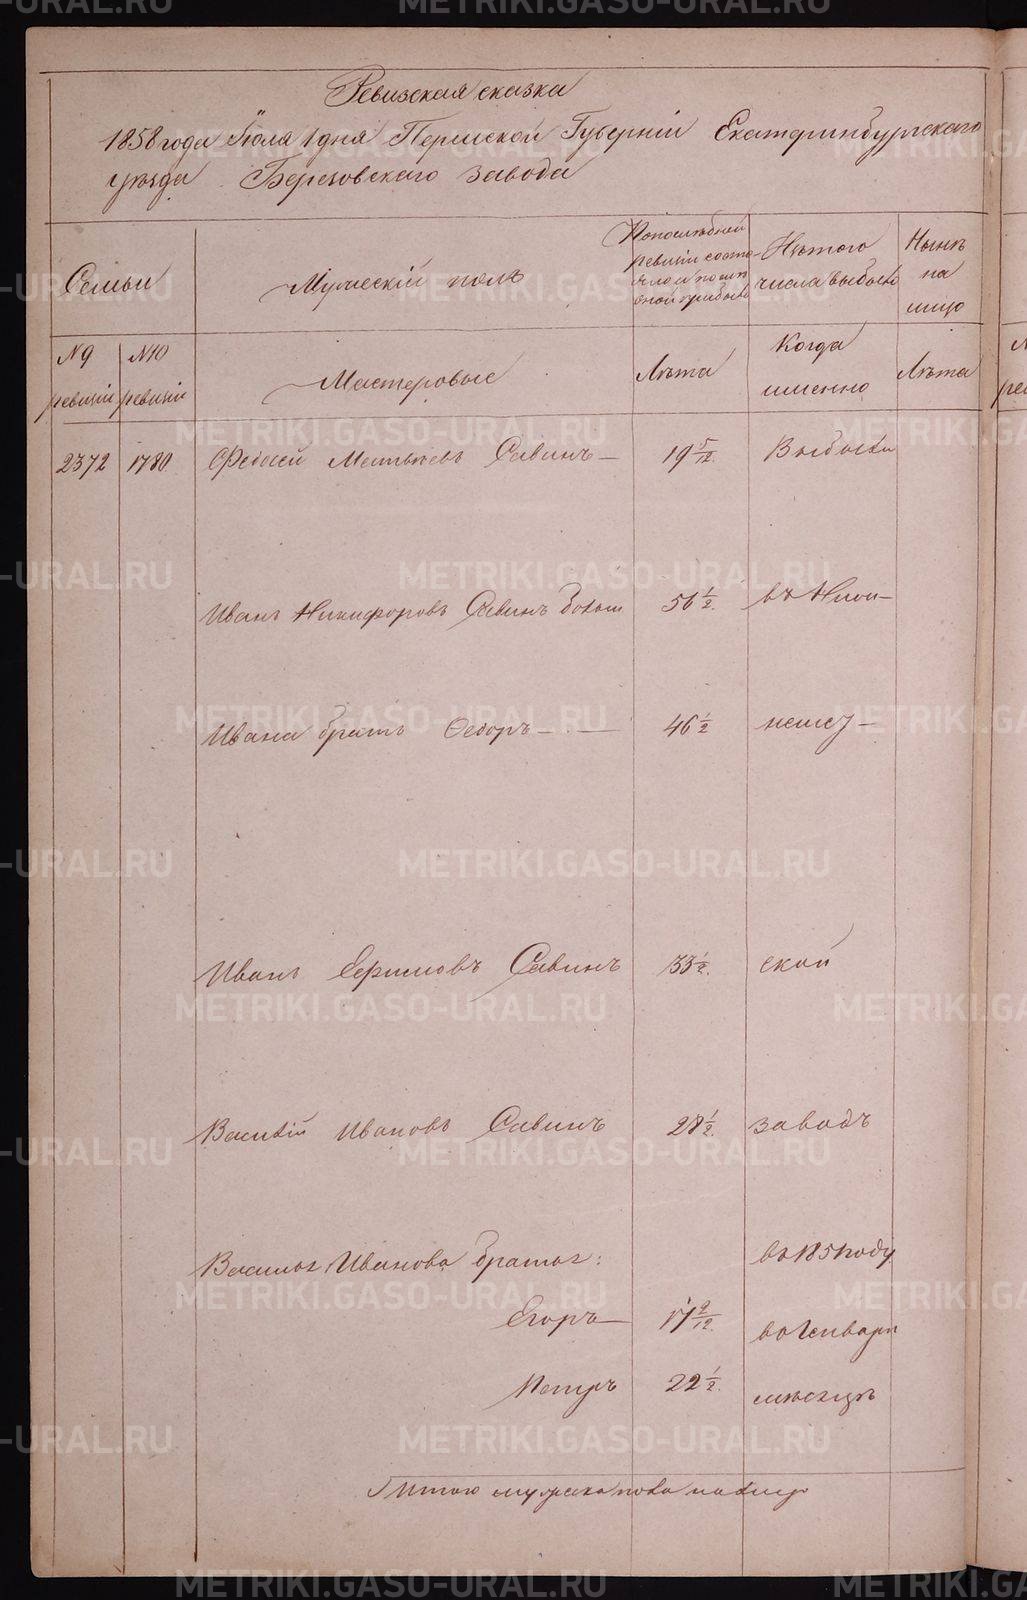 Ревизская сказка
1858 года Іюля 1 дня Пермской Губерніи Екатеринбургскаго
уѣзда Березовскаго завода
Семьи
Мужескій полъ
По послѣдней
ревизіи состо-
яло и послѣ
оной прибыло
Изъ того
числа выбыло
Нынѣ
на
лицо
№ 9
ревизіи
№ 10
ревизіи
Мастеровые
Лѣта
Когда
именно
Лѣта
2372 1780 Савинъ — 19 5/12 Выбыли
Иванъ Никифоровъ Савинъ 56 1/2 въ Ниж-
Ивана братъ Ѳедоръ — 46 1/2
Иванъ Ефимовъ Савинъ 33 1/2 ской
Василій Ивановъ Савинъ 27 1/2 заводъ
Василья Иванова братья: въ 1851 году
Егоръ — 17 9/12 въ Генварѣ
Петръ 22 1/2 мѣсяцѣ
Итого мужеска пола на лицо
METRIKI.GASO-URAL.RU